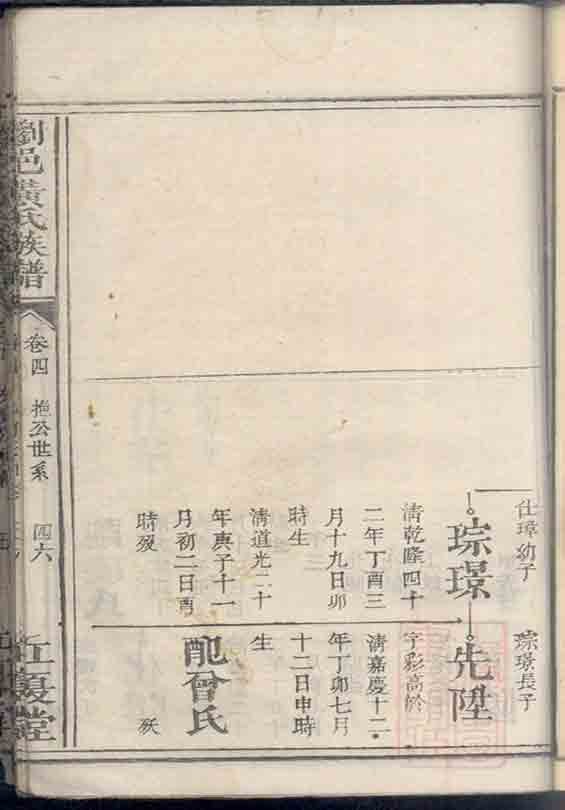 仕璋幼子
琮璟
清乾隆四十
二年丁酉三
月十九日卯
時生
清道光二十
年庚子十一
月初二日酉
時歿
琮璟長子
先陞
字彩高
清嘉慶十二
年丁卯七月
十二日申時
生
配曾氏
歿
劉邑黃氏族譜
卷四
公世系
四六
江夏堂